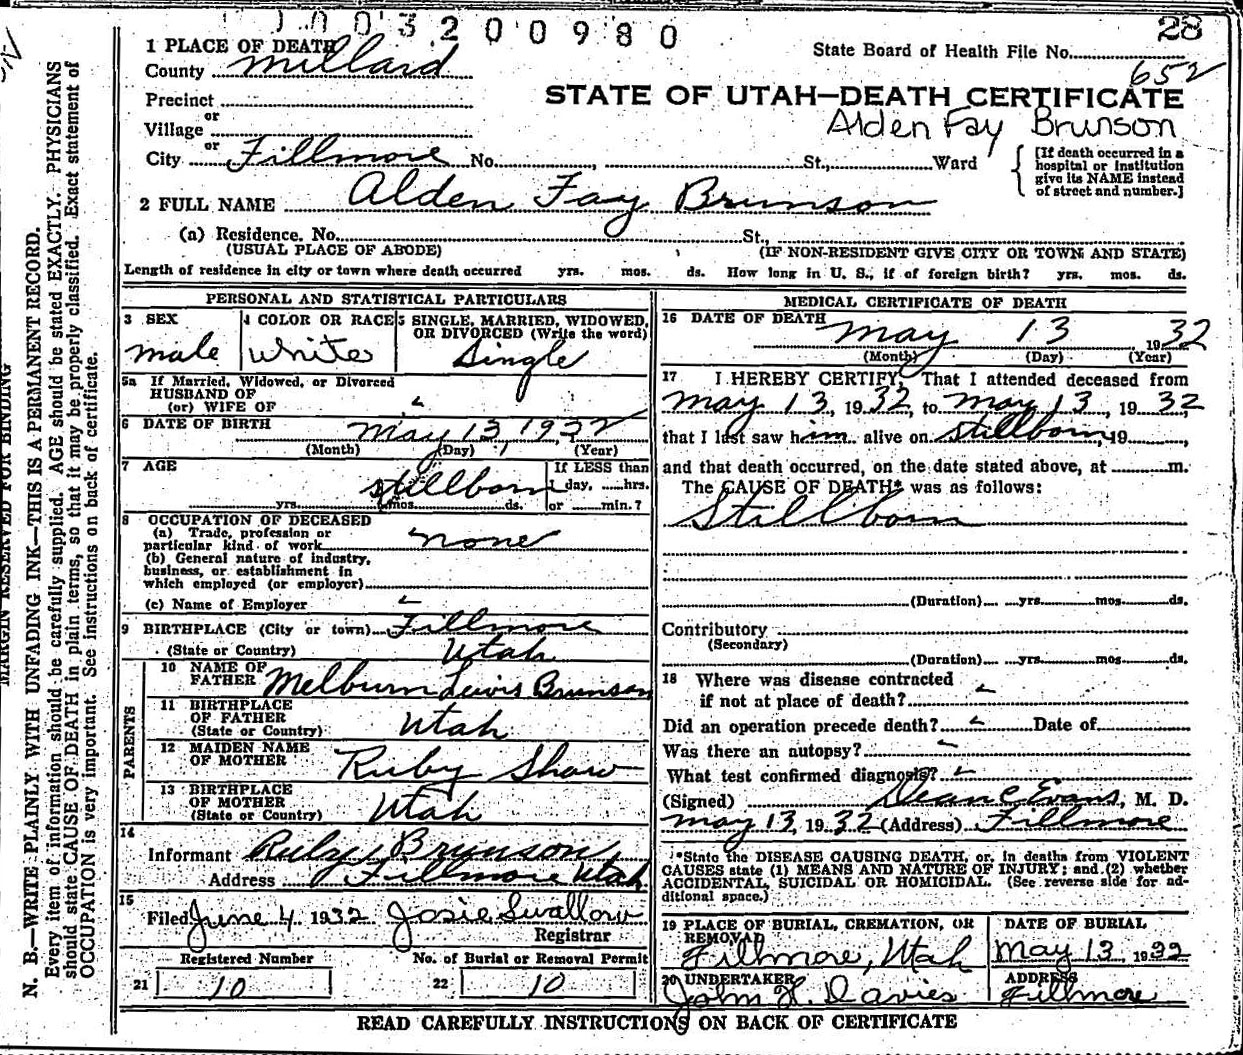 1003200980
28
1 PLACE OF DEATH
State Board of Health File No.
County Millard
652
Precinct
STATE OF UTAH—DEATH CERTIFICATE
or
Alden Fay Brunson
Village
or
City Fillmore No. , St., Ward
[If death occurred in a hospital or institution give its NAME instead of street and number.]
2 FULL NAME Alden Fay Brunson
(a) Residence. No. St.,
(USUAL PLACE OF ABODE) (IF NON-RESIDENT GIVE CITY OR TOWN AND STATE)
Length of residence in city or town where death occurred yrs. mos. ds. How long in U. S., if of foreign birth? yrs. mos. ds.
PERSONAL AND STATISTICAL PARTICULARS
3 SEX
male
4 COLOR OR RACE
White
5 SINGLE, MARRIED, WIDOWED,
OR DIVORCED (Write the word)
Single
5a If Married, Widowed, or Divorced
HUSBAND OF
(or) WIFE OF
6 DATE OF BIRTH May 13, 1932
(Month) (Day) (Year)
7 AGE
stillborn
yrs. mos. ds.
If LESS than
1 day, hrs.
or min.?
8 OCCUPATION OF DECEASED
(a) Trade, profession or
particular kind of work none
(b) General nature of industry,
business, or establishment in
which employed (or employer)
(c) Name of Employer
9 BIRTHPLACE (City or town) Fillmore
(State or Country) Utah
PARENTS
10 NAME OF
FATHER Melburn Lewis Brunson
11 BIRTHPLACE
OF FATHER
(State or Country) Utah
12 MAIDEN NAME
OF MOTHER Ruby Shaw
13 BIRTHPLACE
OF MOTHER
(State or Country) Utah
14
Informant Ruby Brunson
Address Fillmore Utah
15
Filed June 4 1932 Josie Swallow
Registrar
Registered Number
21 10
No. of Burial or Removal Permit
22 10
MEDICAL CERTIFICATE OF DEATH
16 DATE OF DEATH
May 13 1932
(Month) (Day) (Year)
17 I HEREBY CERTIFY, That I attended deceased from
May 13, 1932, to May 13, 1932,
that I last saw him alive on stillborn, 19 ,
and that death occurred, on the date stated above, at m.
The CAUSE OF DEATH* was as follows:
Stillborn
(Duration) yrs. mos. ds.
Contributory
(Secondary)
(Duration) yrs. mos. ds.
18 Where was disease contracted
if not at place of death?
Did an operation precede death? Date of
Was there an autopsy?
What test confirmed diagnosis?
(Signed) Dean C Evans, M. D.
May 13, 1932 (Address) Fillmore
*State the DISEASE CAUSING DEATH, or, in deaths from VIOLENT
CAUSES state (1) MEANS AND NATURE OF INJURY; and (2) whether
ACCIDENTAL, SUICIDAL OR HOMICIDAL. (See reverse side for ad-
ditional space.)
19 PLACE OF BURIAL, CREMATION, OR
REMOVAL
Fillmore, Utah
DATE OF BURIAL
May 13, 1932
20 UNDERTAKER
John H. Davies
ADDRESS
Fillmore
READ CAREFULLY INSTRUCTIONS ON BACK OF CERTIFICATE
MARGIN RESERVED FOR BINDING
N. B.—WRITE PLAINLY WITH UNFADING INK—THIS IS A PERMANENT RECORD.
Every item of information should be carefully supplied. AGE should be stated EXACTLY. PHYSICIANS
should state CAUSE OF DEATH in plain terms, so that it may be properly classified. Exact statement of
OCCUPATION is very important. See instructions on back of certificate.